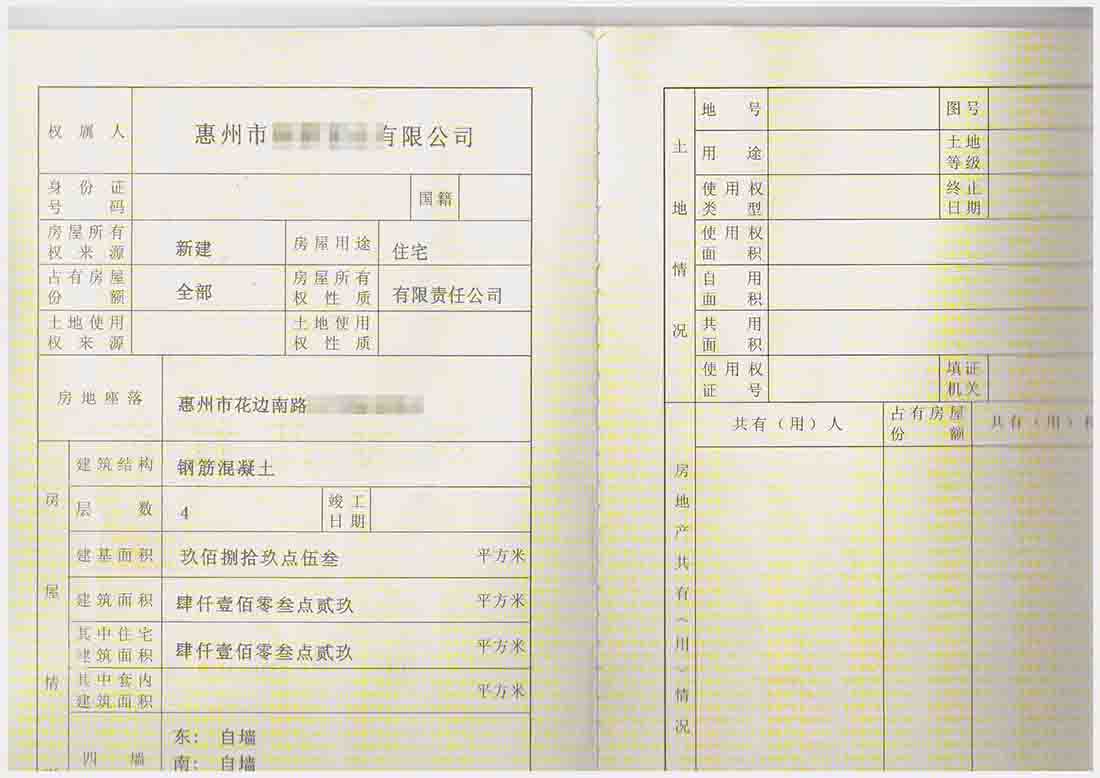 权属人
惠州市
有限公司
身份证
号码
国籍
房屋所有
权来源
新建
房屋用途
住宅
占有房屋
份额
全部
房屋所有
权性质
有限责任公司
土地使用
权来源
土地使用
权性质
房地座落
惠州市花边南路
房屋情
建筑结构
钢筋混凝土
层数
4
竣工
日期
建基面积
玖佰捌拾玖点伍叁
平方米
建筑面积
肆仟壹佰零叁点贰玖
平方米
其中住宅
建筑面积
肆仟壹佰零叁点贰玖
平方米
其中套内
建筑面积
平方米
四墙
东： 自墙
南： 自墙
土地情况
地号
图号
用途
土地
等级
使用权
类型
终止
日期
使用权
面积
自用
面积
共用
面积
使用权
证号
填证
机关
共有（用）人
占有房屋
份额
共有（用）
房地产共有（用）情况